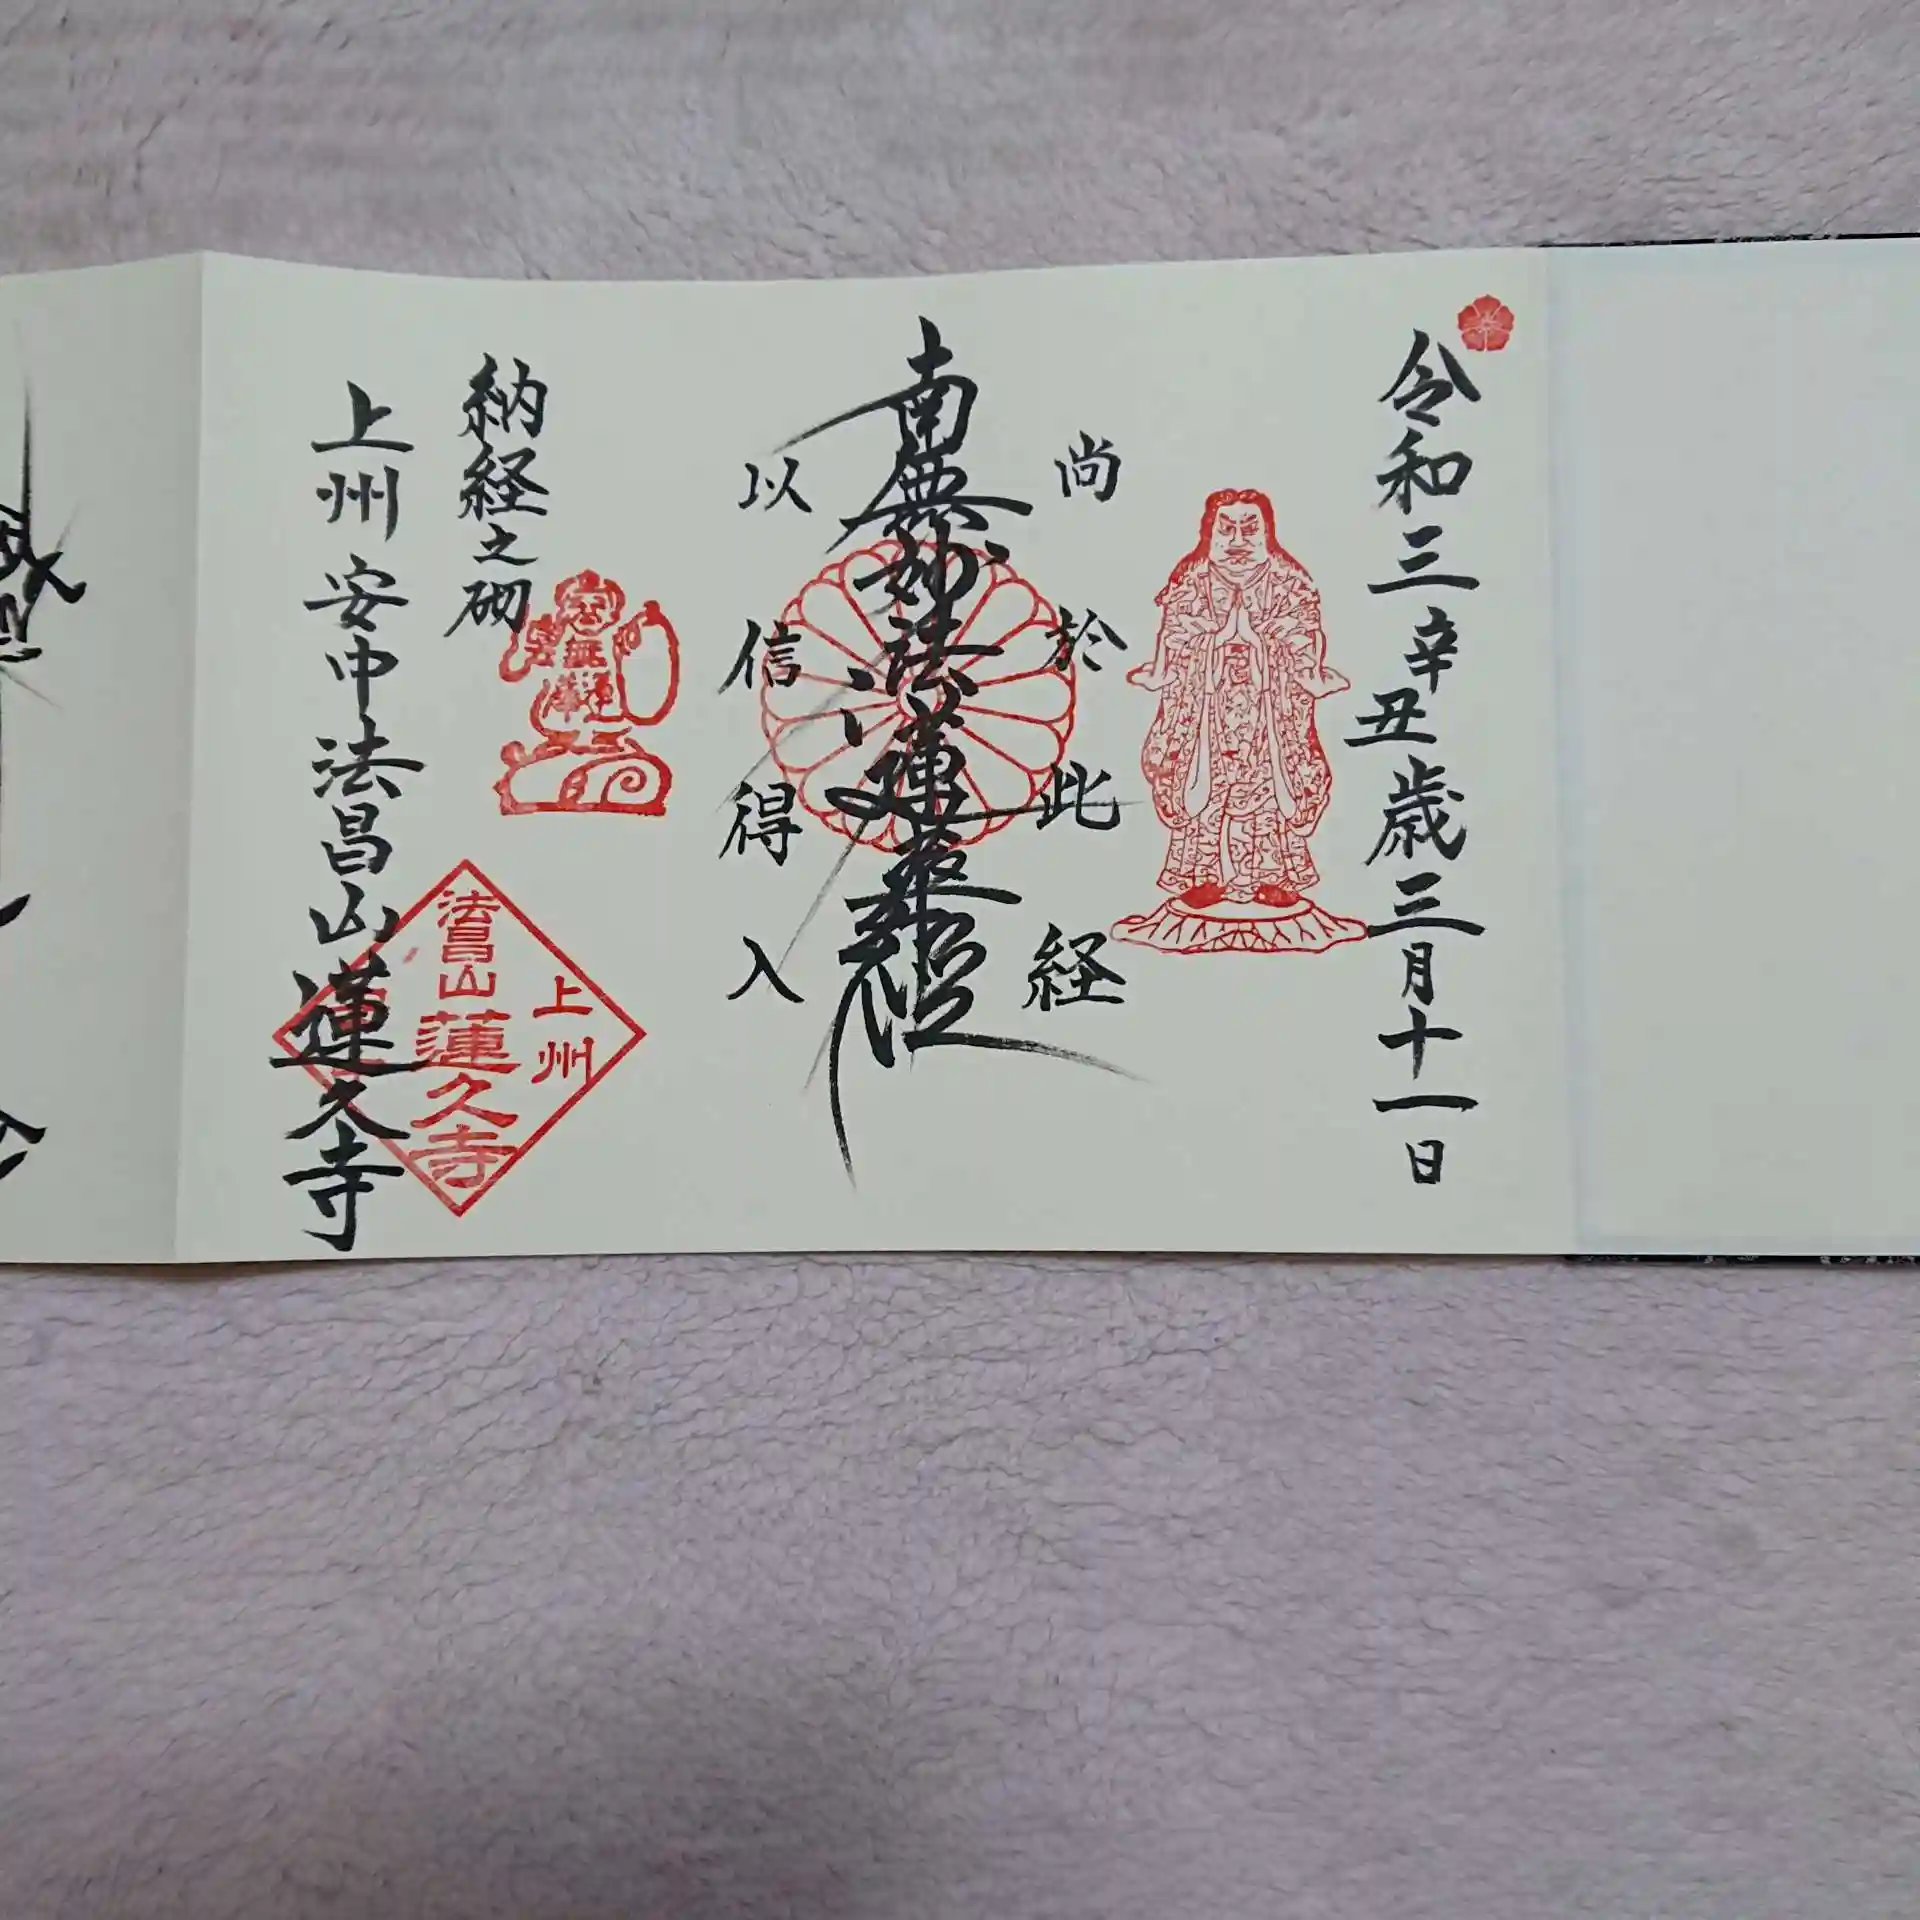 令和三辛丑歳三月十一日
尚於此経
南無妙法蓮華経
以信得入
納経之砌
上州安中法昌山蓮久寺
上州
法昌山蓮久寺